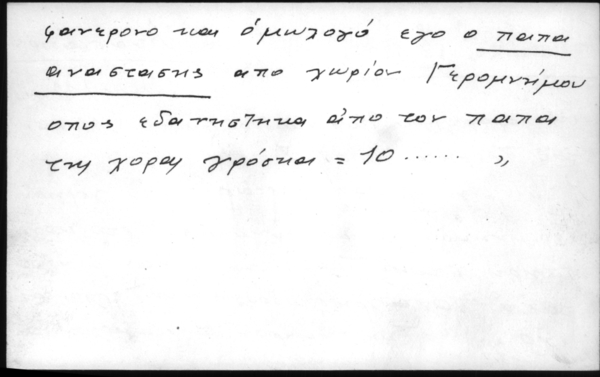 φανερονο και ὁμωλογό εγο ο παπα
αναστασης απο χωρίον Γερομνήμου
οπος εδανηστηκα ἀπο τον παπα
της χορας γρόσια = 10 ...... „